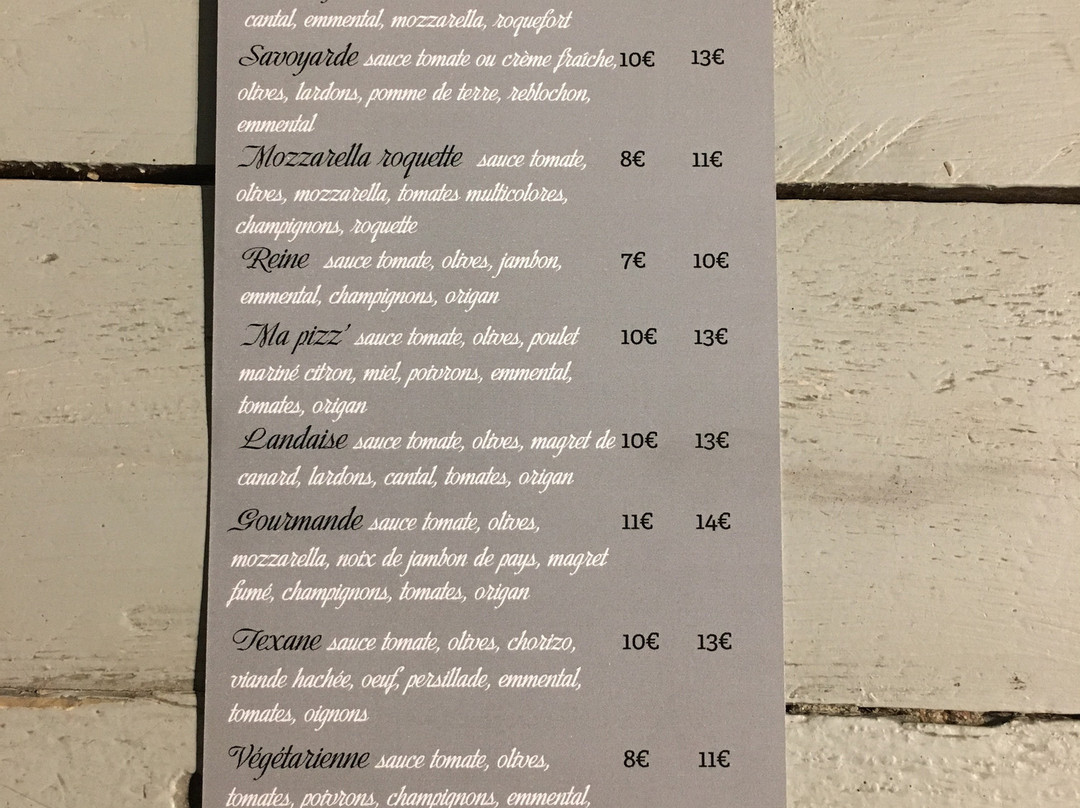 cantal, emmental, mozzarella, roquefort
Savoyarde sauce tomate ou crème fraîche, 10€ 13€
olives, lardons, pomme de terre, reblochon,
emmental
Mozzarella roquette sauce tomate, 8€ 11€
olives, mozzarella, tomates multicolores,
champignons, roquette
Reine sauce tomate, olives, jambon, 7€ 10€
emmental, champignons, origan
Ma pizz' sauce tomate, olives, poulet 10€ 13€
mariné citron, miel, poivrons, emmental,
tomates, origan
Landaise sauce tomate, olives, magret de 10€ 13€
canard, lardons, cantal, tomates, origan
Gourmande sauce tomate, olives, 11€ 14€
mozzarella, noix de jambon de pays, magret
fumé, champignons, tomates, origan
Texane sauce tomate, olives, chorizo, 10€ 13€
viande hachée, oeuf, persillade, emmental,
tomates, oignons
Végétarienne sauce tomate, olives, 8€ 11€
tomates, poivrons, champignons, emmental,